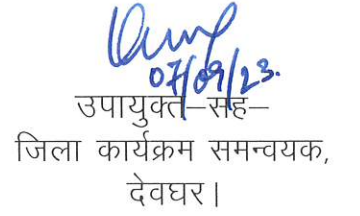 07/09/23.
उपायुक्त–सह–
जिला कार्यक्रम समन्वयक,
देवघर।